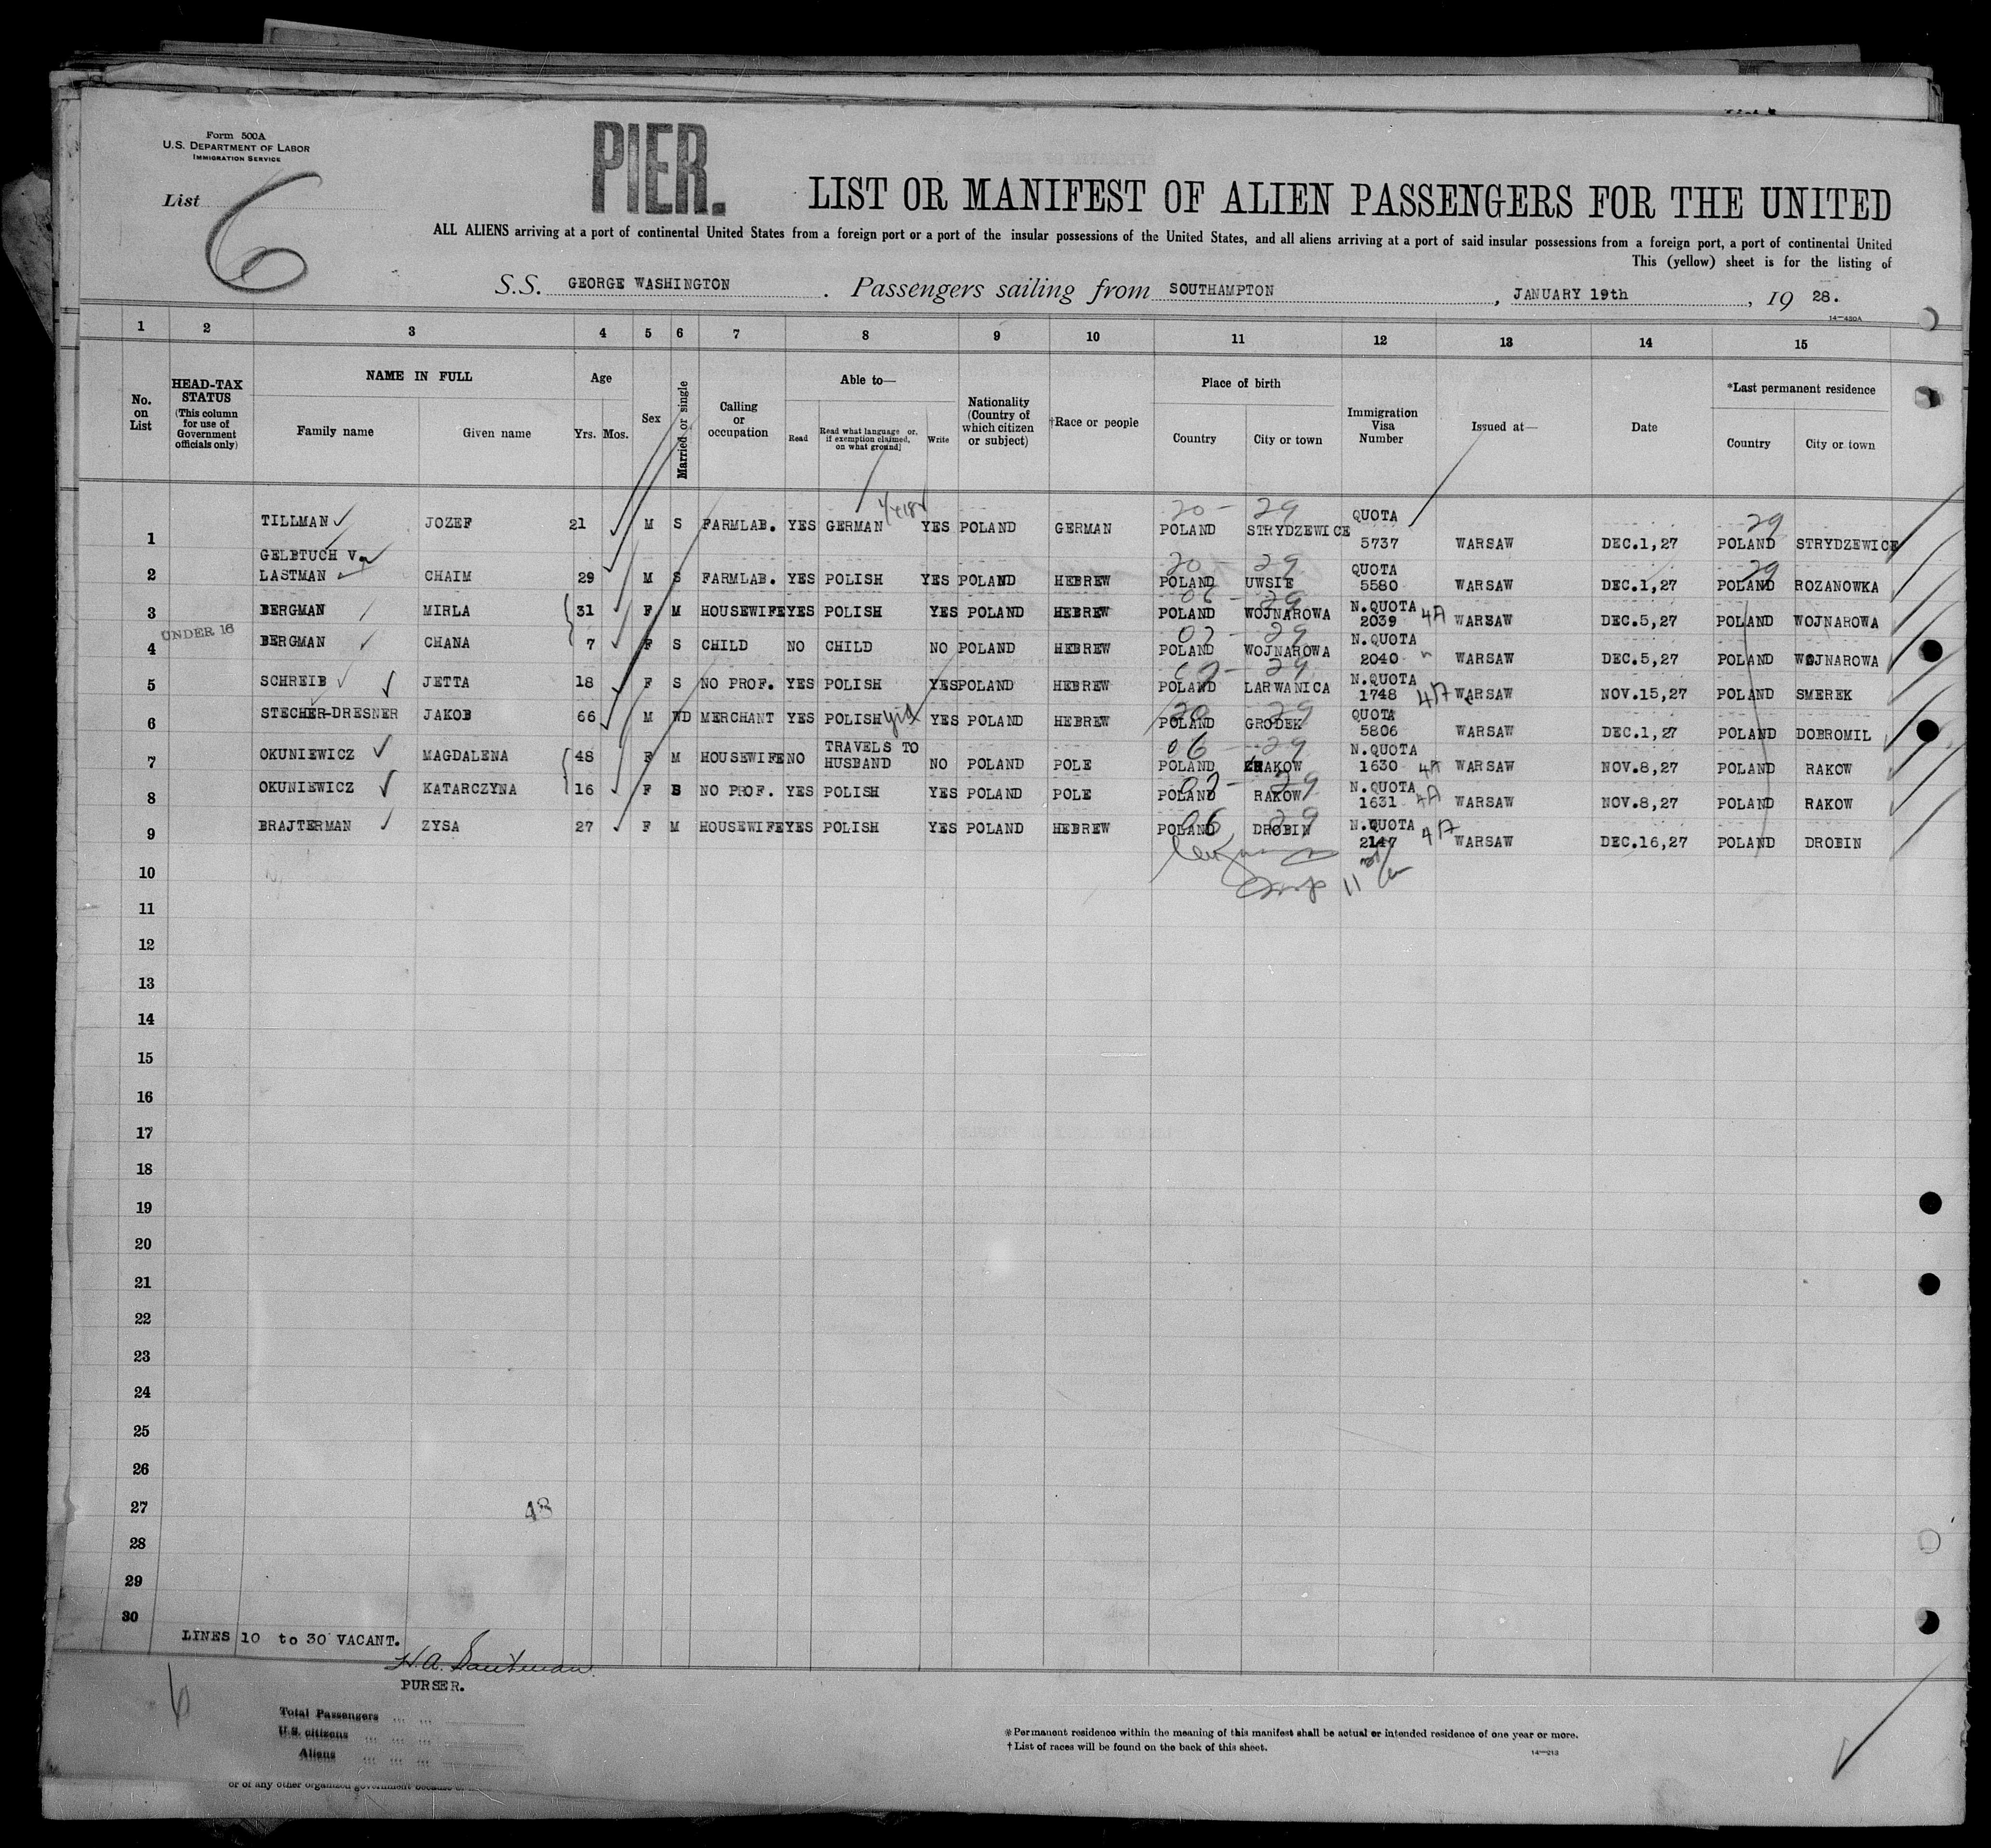 Form 500A
U.S. DEPARTMENT OF LABOR
IMMIGRATION SERVICE
PIER.
List 6
LIST OR MANIFEST OF ALIEN PASSENGERS FOR THE UNITED
ALL ALIENS arriving at a port of continental United States from a foreign port or a port of the insular possessions of the United States, and all aliens arriving at a port of said insular possessions from a foreign port, a port of continental United
This (yellow) sheet is for the listing of
S.S. GEORGE WASHINGTON. Passengers sailing from SOUTHAMPTON, JANUARY 19th, 19 28.
14—450A
1 2 3 4 5 6 7 8 9 10 11 12 13 14 15
No. on List
HEAD-TAX STATUS (This column for use of Government officials only)
NAME IN FULL
Family name Given name
Age
Yrs. Mos.
Sex
Married or single
Calling or occupation
Able to—
Read Read what language or, if exemption claimed, on what ground] Write
Nationality (Country of which citizen or subject)
†Race or people
Place of birth
Country City or town
Immigration Visa Number
Issued at—
Date
*Last permanent residence
Country City or town
20 - 29 29
1 TILLMAN JOZEF 21 M S FARMLAB. YES GERMAN YES POLAND GERMAN POLAND STRYDZEWICE QUOTA 5737 WARSAW DEC.1,27 POLAND STRYDZEWICE
20 - 29 29
2 GELBTUCH V LASTMAN CHAIM 29 M S FARMLAB. YES POLISH YES POLAND HEBREW POLAND UWSIE QUOTA 5580 WARSAW DEC.1,27 POLAND ROZANOWKA
29
3 BERGMAN MIRLA 31 F M HOUSEWIFE YES POLISH YES POLAND HEBREW POLAND WOJNAROWA N.QUOTA 2039 4A WARSAW DEC.5,27 POLAND WOJNAROWA
07 - 29
UNDER 16
4 BERGMAN CHANA 7 F S CHILD NO CHILD NO POLAND HEBREW POLAND WOJNAROWA N.QUOTA 2040 " WARSAW DEC.5,27 POLAND WOJNAROWA
07 - 29
5 SCHREIB JETTA 18 F S NO PROF. YES POLISH YES POLAND HEBREW POLAND LARWANICA N.QUOTA 1748 4A WARSAW NOV.15,27 POLAND SMEREK
20 29
6 STECHER-DRESNER JAKOB 66 M WD MERCHANT YES POLISH yid YES POLAND HEBREW POLAND GRODEK QUOTA 5806 WARSAW DEC.1,27 POLAND DOBROMIL
06 - 29
7 OKUNIEWICZ MAGDALENA 48 F M HOUSEWIFE NO TRAVELS TO HUSBAND NO POLAND POLE POLAND RAKOW N.QUOTA 1630 4A WARSAW NOV.8,27 POLAND RAKOW
07 - 29
8 OKUNIEWICZ KATARCZYNA 16 F S NO PROF. YES POLISH YES POLAND POLE POLAND RAKOW N.QUOTA 1631 4A WARSAW NOV.8,27 POLAND RAKOW
06 29
9 BRAJTERMAN ZYSA 27 F M HOUSEWIFE YES POLISH YES POLAND HEBREW POLAND DROBIN N.QUOTA 2147 4A WARSAW DEC.16,27 POLAND DROBIN
10
11
12
13
14
15
16
17
18
19
20
21
22
23
24
25
26
27 48
28
29
30
LINES 10 to 30 VACANT.
PURSER.
6
Total Passengers
U.S. citizens
Aliens
*Permanent residence within the meaning of this manifest shall be actual or intended residence of one year or more.
†List of races will be found on the back of this sheet.
14—213
or of any other organized government because